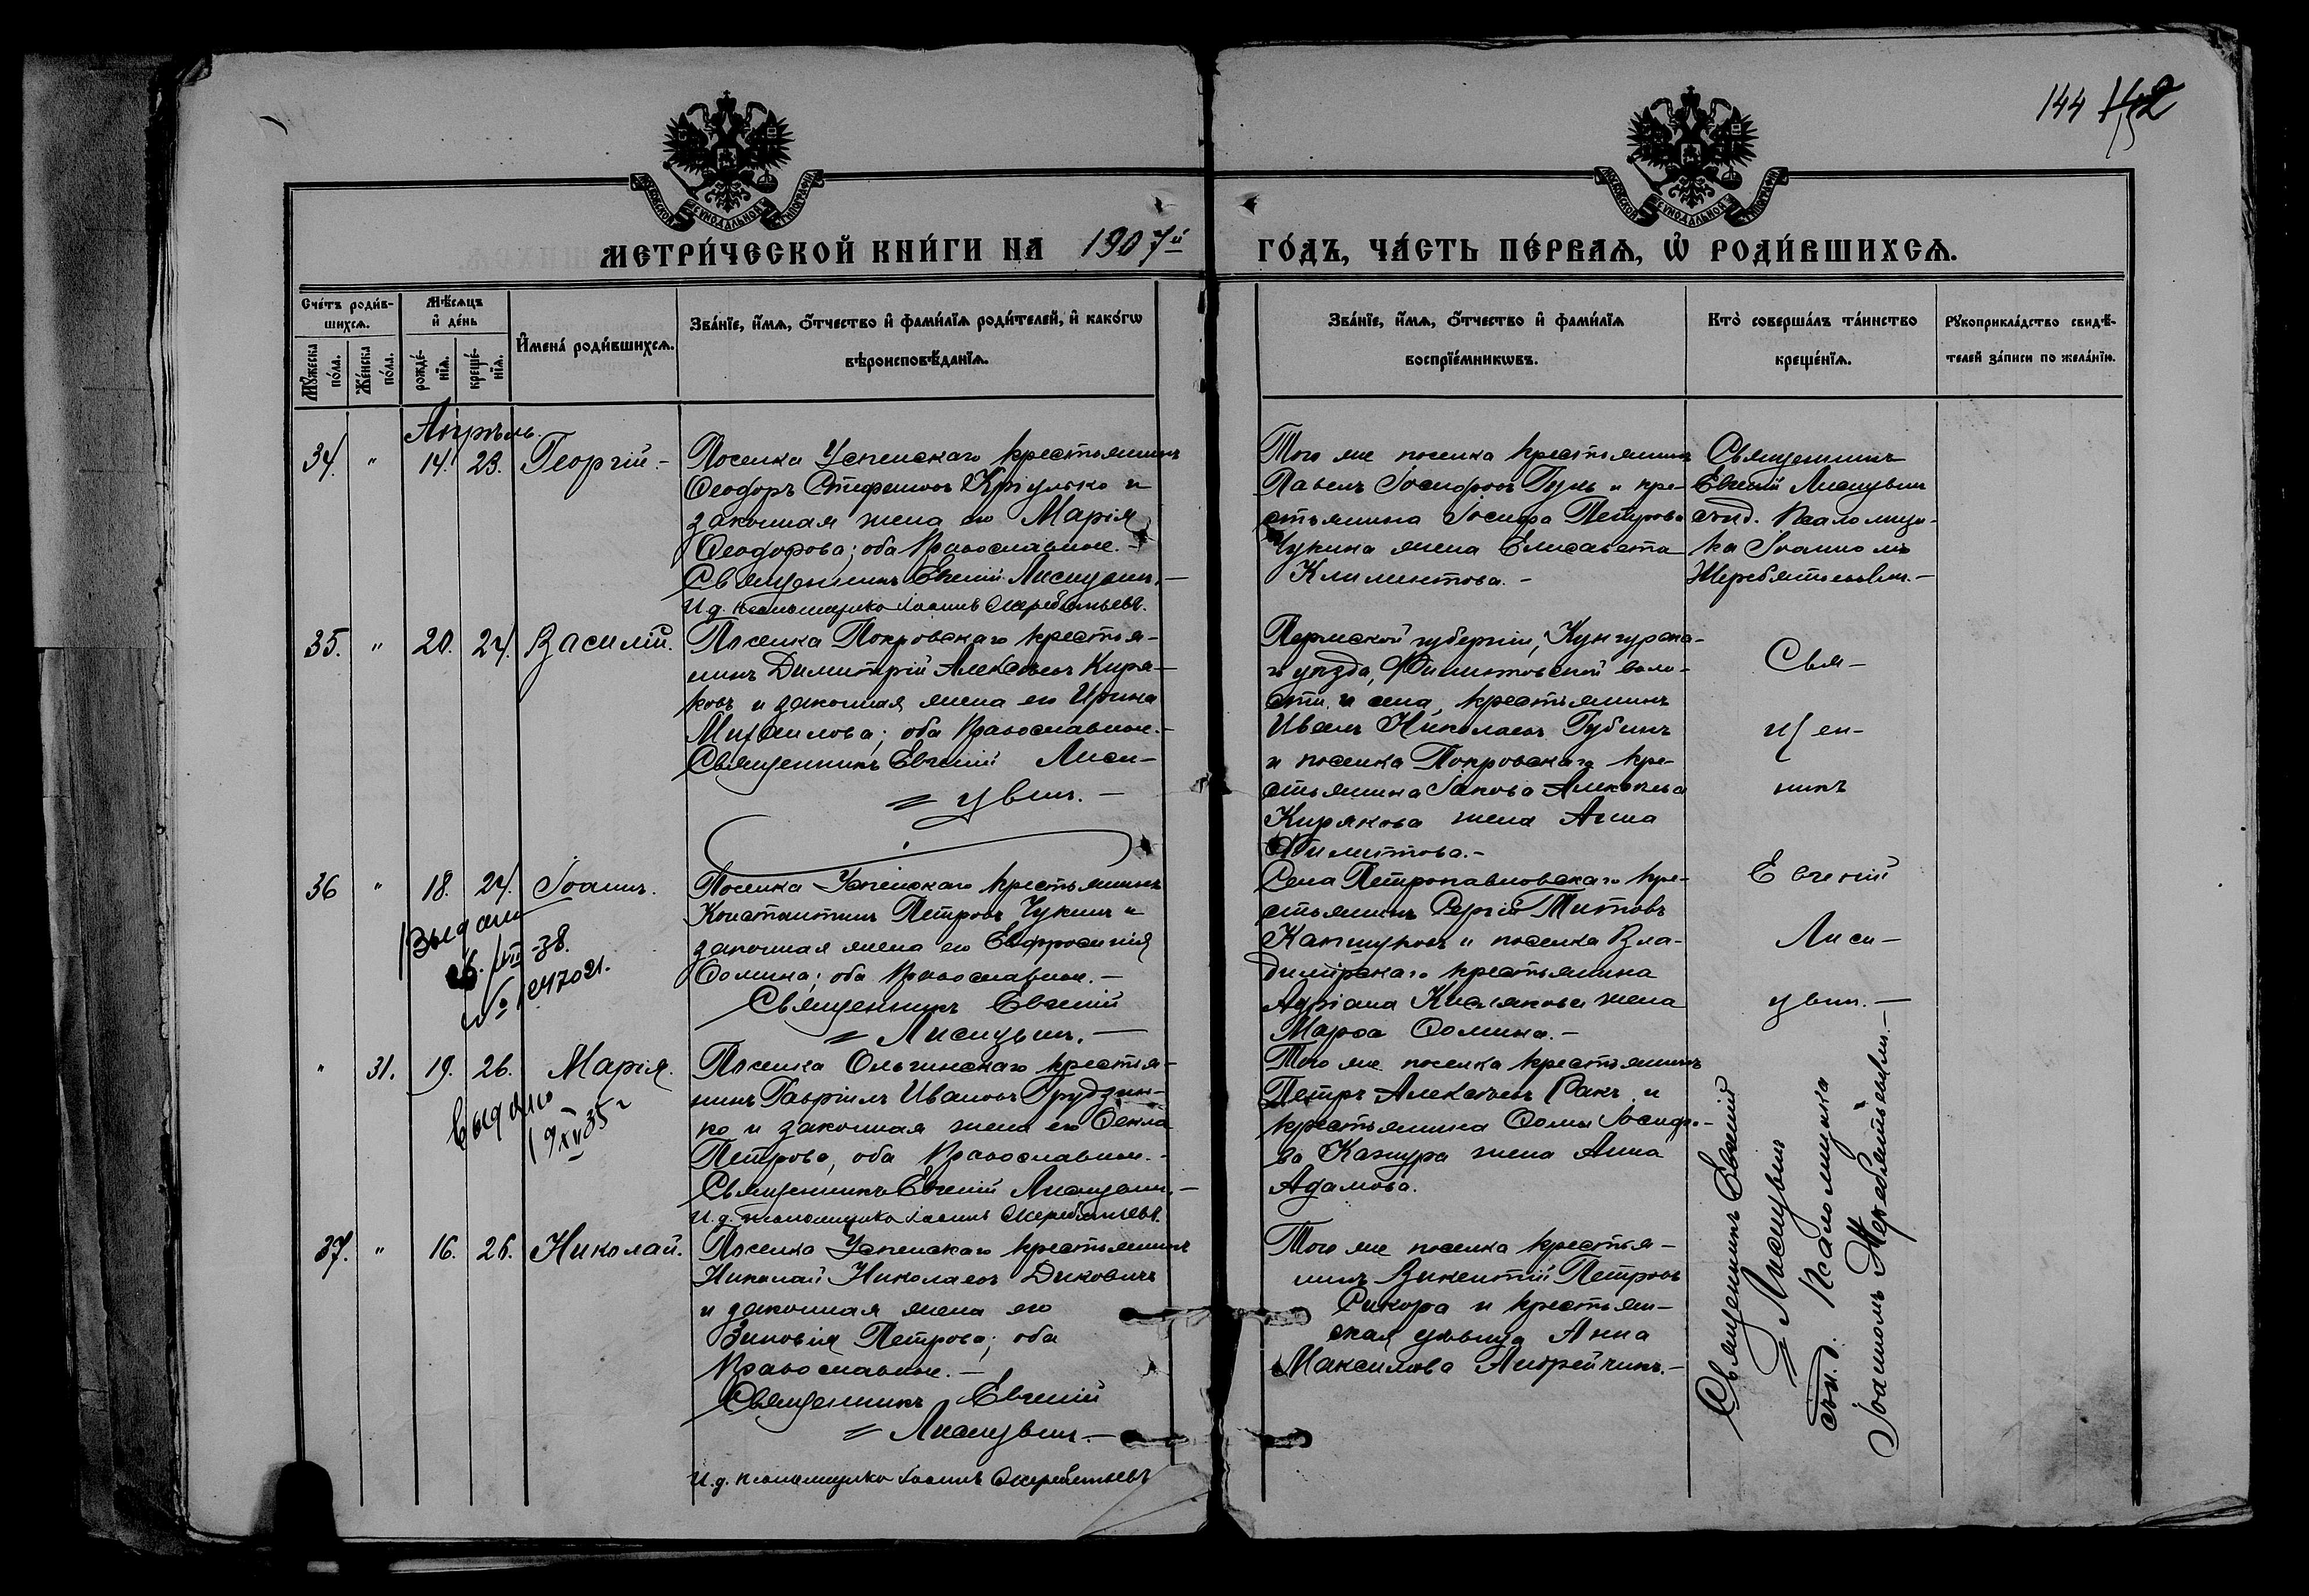 144 142
МОСКОВСКОЙ СѴНОДАЛЬНОЙ ТИПОГРАФІИ
МОСКОВСКОЙ СѴНОДАЛЬНОЙ ТИПОГРАФІИ
МЕТРИ́ЧЕСКОЙ КНИ́ГИ НА 1907й ГО́ДЪ, ЧА́СТЬ ПЕ́РВАѦ, Ѡ҆ РОДИ́ВШИХСѦ.
Сче́тъ роди́в-
шихсѧ.
Мꙋ́жеска
по́ла.
Же́нска
по́ла.
Мѣ́сѧцъ
и҆ де́нь
рожде́-
нїѧ.
креще́-
нїѧ.
И҆мена̀ роди́вшихсѧ.
Зва́нїе, и҆́мѧ, ѻ҆́тчество и҆ фами́лїѧ роди́телей, и҆ како́гѡ
вѣроисповѣ́данїѧ.
Зва́нїе, и҆́мѧ, ѻ҆́тчество и҆ фами́лїѧ
воспрїе́мникѡвъ.
Кто̀ соверша́лъ та́инство
креще́нїѧ.
Рꙋкоприкла́дство свидѣ́-
телей за́писи по жела́нїю.
Апрѣль.
34. " 14. 23. Георгій.-
Поселка Успенскаго крестьянинъ
Ѳеодоръ Стефановъ и
законная жена его Марія
Ѳеодорова; оба православные.-
Священникъ Евгеній Лисицынъ.-
И.д. псаломщика Іоаннъ Жеребятьевъ.
Того же поселка крестьянинъ
Павелъ Іосифовъ и кре-
стьянина Іосифа Петрова
Чукина жена Елисавета
Климентова.-
Священникъ
Евгеній Лисицынъ
съ и.д. псаломщи-
ка Іоанномъ
Жеребятьевымъ.-
35. " 20. 24. Василій.
Поселка Покровскаго крестья-
нинъ Димитрій Алексѣевъ Киря-
ковъ и законная жена его Ирина
Михаилова; оба православные.-
Священникъ Евгеній Лиси-
= цынъ.-
Пермской губерніи, Кунгурска-
го уѣзда, Филиповской воло-
сти и села, крестьянинъ
Иванъ Николаевъ Губинъ
и поселка Покровскаго кре-
стьянина Іакова Алексѣева
Кирякова жена Анна
Филиппова.-
Свя-
щен-
никъ
Евгеній
Лиси-
цынъ.-
36 " 18. 24. Іоаннъ.
Выдан
VIII-38.
№ 1247021.
Поселка Успенскаго крестьянинъ
Константинъ Петровъ Чукинъ и
законная жена его Евфросинія
Ѳомина; оба православные.-
Священникъ Евгеній
= Лисицынъ.-
Села Петропавловскаго кре-
стьянинъ Сергій Титовъ
и поселка Вла-
димірскаго крестьянина
Адріана Кислякова жена
Марѳа Ѳомина.-
" 31. 19. 26. Марія.
Выдано
19 XV 35 г
Поселка Ольгинскаго крестья-
нинъ Гавріилъ Ивановъ Грудзин-
ко и законная жена его Ѳекла
Петрова, оба православные.-
Священникъ Евгеній Лисицынъ.-
И.д. псаломщика Іоаннъ Жеребятьевъ.
Того же поселка крестьянинъ
Петръ Алексѣевъ Ракъ и
крестьянина Ѳомы Іосифо-
ва Кажура жена Анна
Адамова.
37. " 16. 26. Николай.
Поселка Успенскаго крестьянинъ
Николай Николаевъ Диковичъ
и законная жена его
Зиновія Петрова; оба
православные.-
Священникъ Евгеній
= Лисицынъ.-
И.д. псаломщика Іоаннъ Жеребятьевъ
Того же поселка крестья-
нинъ Викентій Петровъ
Сикора и крестьян-
ская дѣвица Анна
Максимова Андрейчикъ.-
Священникъ Евгеній
= Лисицынъ
съ и.д. псаломщика
Іоанномъ Жеребятьевымъ.-